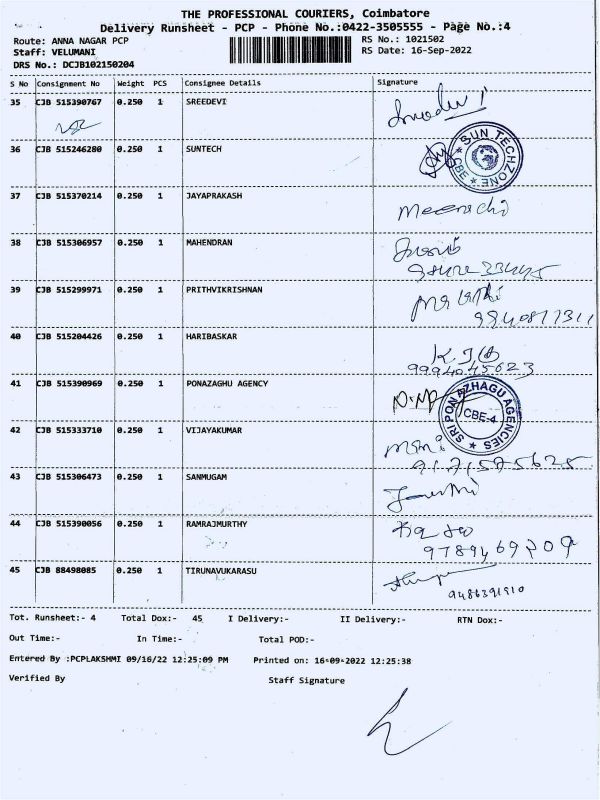 THE PROFESSIONAL COURIERS, Coimbatore
Delivery Runsheet - PCP - Phone No.:0422-3505555 - Page No.:4
Route: ANNA NAGAR PCP
RS No.: 1021502
Staff: VELUMANI
RS Date: 16-Sep-2022
DRS No.: DCJB102150204
S No Consignment No Weight PCS Consignee Details Signature
35 CJB 515390767 0.250 1 SREEDEVI
36 CJB 515246280 0.250 1 SUNTECH
SUN TECHZONE
* CBE *
37 CJB 515370214 0.250 1 JAYAPRAKASH
Meenachi
38 CJB 515306957 0.250 1 MAHENDRAN
39 CJB 515299971 0.250 1 PRITHVIKRISHNAN
40 CJB 515204426 0.250 1 HARIBASKAR
9994045623
41 CJB 515390969 0.250 1 PONAZAGHU AGENCY
SRI PON AZHAGU AGENCIES
CBE-4
42 CJB 515333710 0.250 1 VIJAYAKUMAR
9171575625
43 CJB 515306473 0.250 1 SANMUGAM
44 CJB 515390056 0.250 1 RAMRAJMURTHY
9789469209
45 CJB 88498085 0.250 1 TIRUNAVUKARASU
9486391910
Tot. Runsheet:- 4 Total Dox:- 45 I Delivery:- II Delivery:- RTN Dox:-
Out Time:- In Time:- Total POD:-
Entered By :PCPLAKSHMI 09/16/22 12:25:09 PM Printed on: 16-09-2022 12:25:38
Verified By Staff Signature